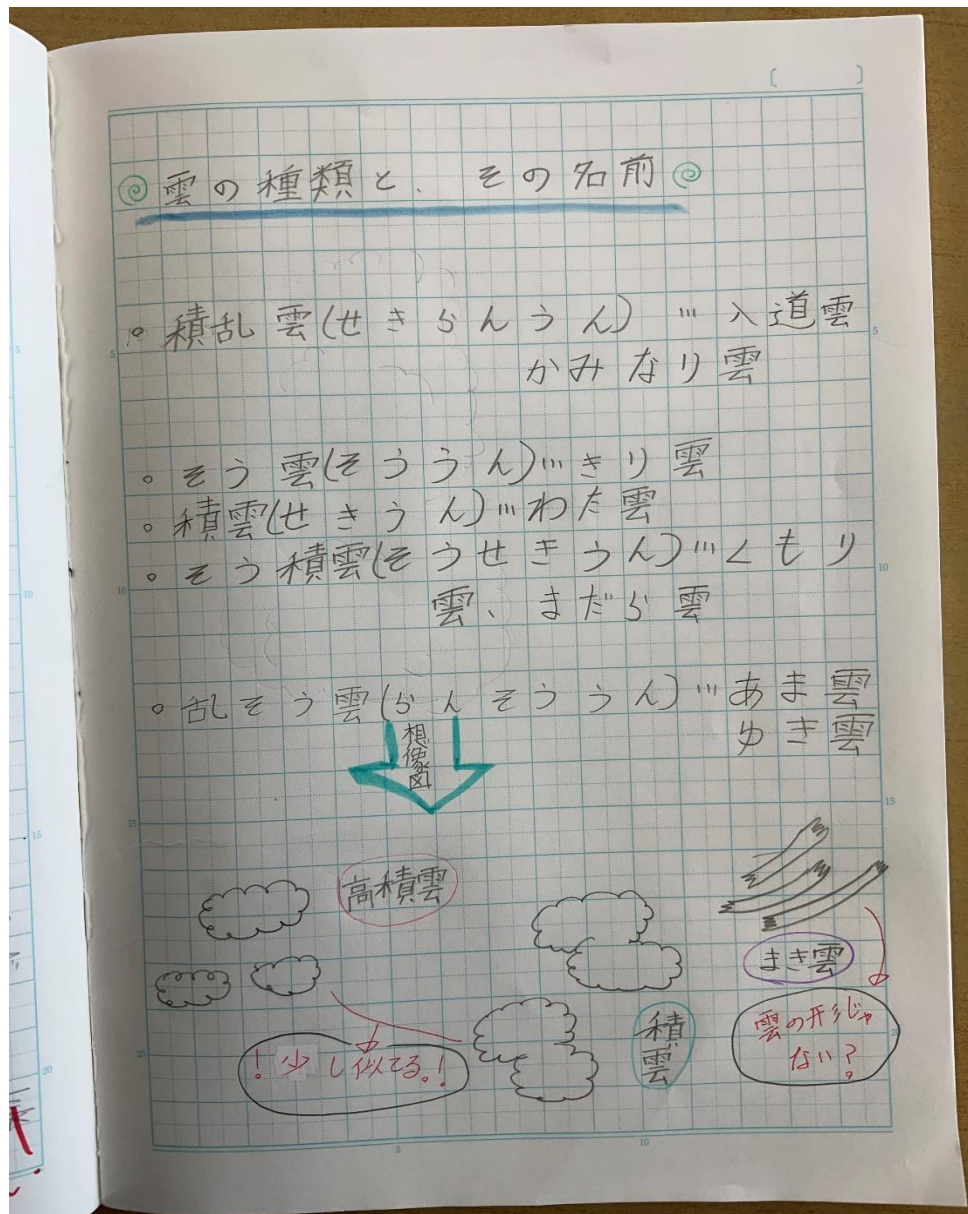 雲の種類と、その名前
。積乱雲(せきらんうん)…入道雲
かみなり雲
。そう雲(そううん)…きり雲
。積雲(せきうん)…わた雲
。そう積雲(そうせきうん)…くもり
雲、まだら雲
。乱そう雲(らんそううん)…あま雲
ゆき雲
想像図
高積雲
まき雲
積雲
雲の形じゃ
ない?
!少し似てる。!
5
10
15
20
5
10
15
20
5
10